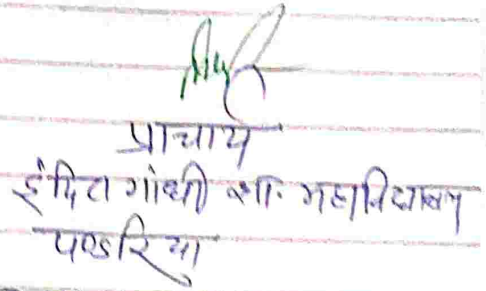 प्राचार्य
इंदिरा गांधी शा. महाविद्यालय
पण्डरिया